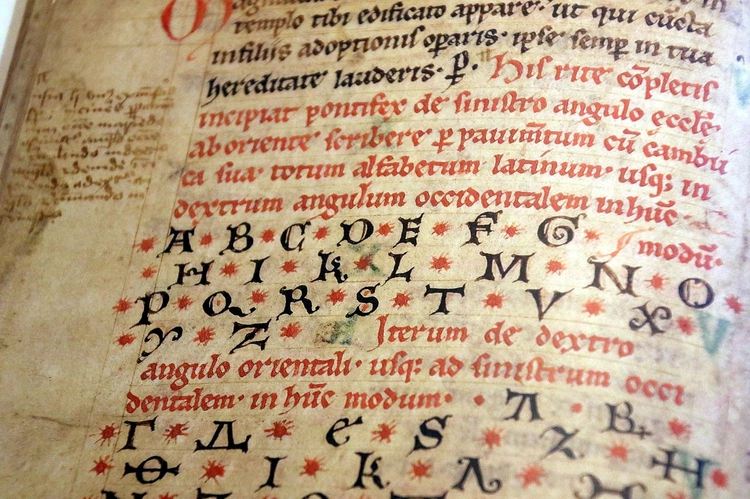 templo tibi edificato appare· ut qui cūcta
infilius adoptionis oꝑaris· ipse semꝑ in tua
hereditate lauderis· ꝑ· His rite cōpletis
incipiat pontifex de sinistro angulo eccłe·
ab oriente scribere ꝑ pauimtum cū cambu
ca sua· totum alfabetum latinum· usq; in
dextrum angulum occidentalem in hūc·
A B C D E F G modū·
H I K L M N O
P Q R S T V X
Y Z Iterum de dextro
angulo orientali· usq; ad sinistrum occi
dentalem· in hūc modum· Α Β
Γ Δ e S Z H
Θ I K Λ